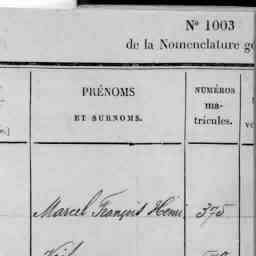 Nº 1003
de la Nomenclature
PRÉNOMS
ET SURNOMS.
NUMÉROS
ma-
tricules.
Marcel François Henri
375